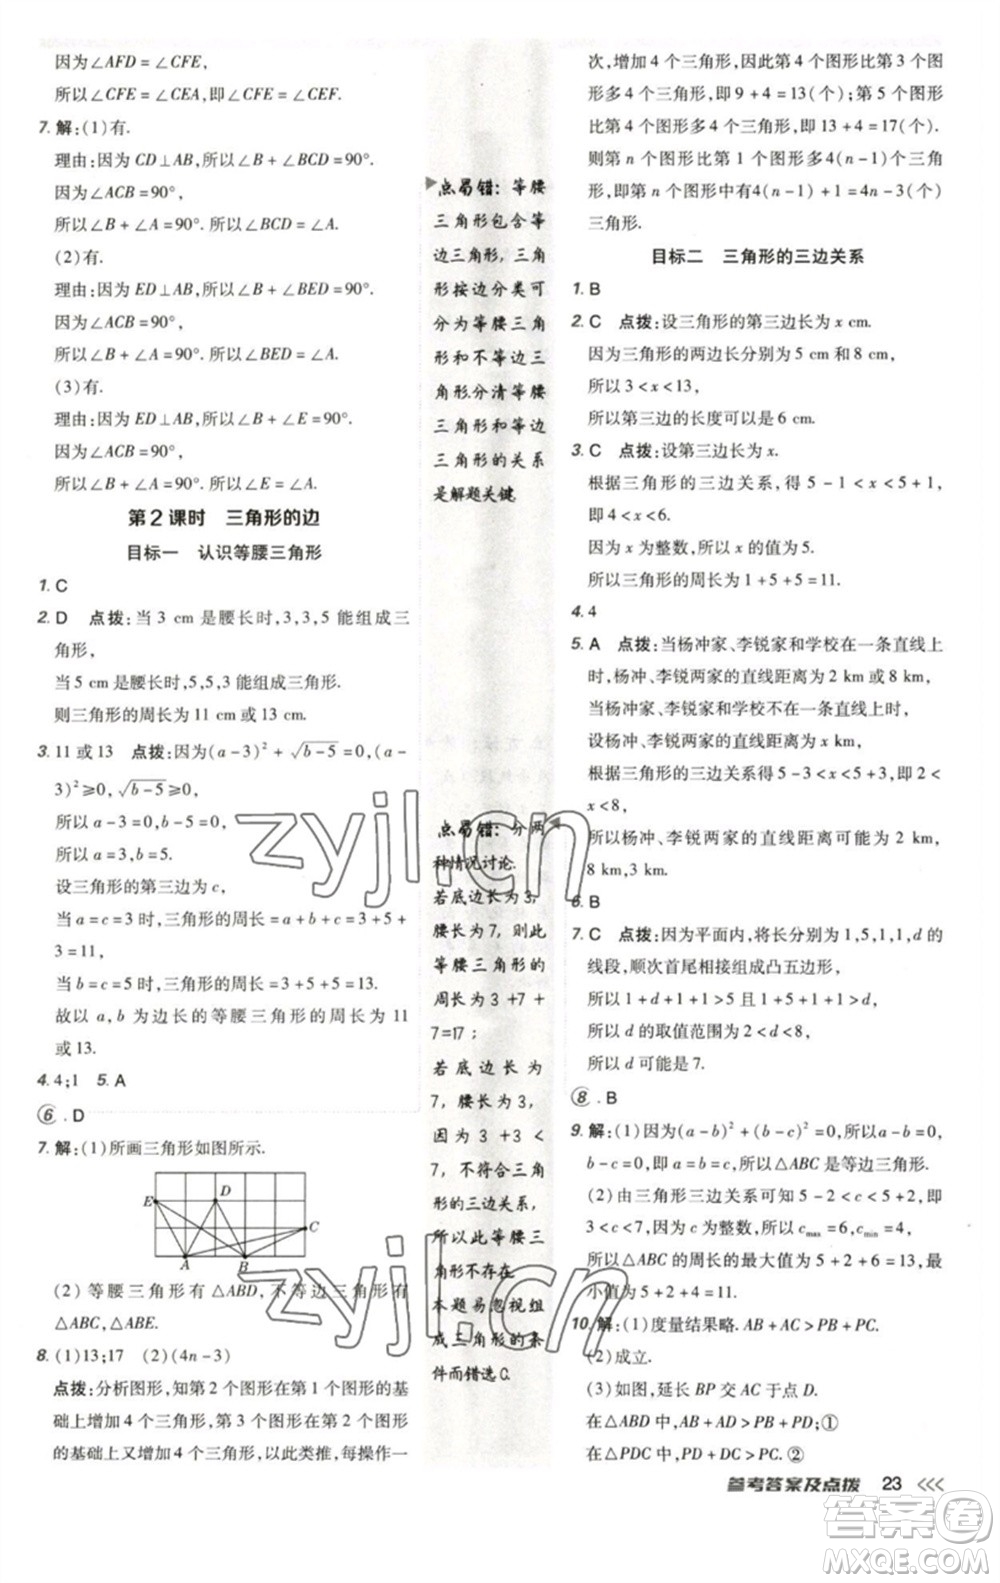 因为∠AFD=∠CFE,
所以∠CFE=∠CEA,即∠CFE=∠CEF.
7. 解:(1)有.
理由:因为 CD⊥AB,所以∠B+∠BCD=90°.
因为∠ACB=90°,
所以∠B+∠A=90°,所以∠A=∠BCD.
(2)有.
理由:因为 ED⊥AB,所以∠B+∠BED=90°.
因为∠ACB=90°,
所以∠B+∠A=90°,所以∠BED=∠A.
(3)有.
理由:因为 ED⊥AB,所以∠B+∠E=90°.
因为∠ACB=90°,
所以∠B+∠A=90°,所以∠E=∠A.
第2课时 三角形的边
目标一 认识等腰三角形
1. C
2. D 点拨:当 3 cm 是腰长时,3,3,5 能组成三
角形,
当 5 cm 是腰长时,5,5,3 能组成三角形.
则三角形的周长为 11 cm 或 13 cm.
3. 11 或 13 点拨:因为(a-3)²+√(b-5)=0,(a-
3)²≥0,√(b-5)≥0,
所以 a-3=0,b-5=0,
所以 a=3,b=5.
设三角形的第三边为 c,
当 a=c=3 时,三角形的周长=a+b+c=3+5+
3=11,
当 b=c=5 时,三角形的周长=3+5+5=13.
故以 a,b 为边长的等腰三角形的周长为 11
或 13.
4. 4;1 5. A
⑥. D
7. 解:(1)所画三角形如图所示.
E D C A B
(2)等腰三角形有△ABD,不等边三角形有
△ABC,△ABE.
8. (1)13;17 (2)(4n-3)
点拨:分析图形,知第 2 个图形在第 1 个图形的基
础上增加 4 个三角形,第 3 个图形在第 2 个图形
的基础上又增加 4 个三角形,以此类推,每操作一
点易错:等腰
三角形包含等
边三角形,三角
形按边分类可
分为等腰三角
形和不等边三
角形.分清等腰
三角形和等边
三角形的关系
是解题关键.
点易错:分两
种情况讨论.
若底边长为3,
腰长为7,则此
等腰三角形的
周长为 3+7+
7=17;
若底边长为
7,腰长为3,
因为 3+3<
7,不符合三角
形的三边关系,
所以此等腰三
角形不存在.
本题易忽视组
成三角形的条
件而错选C.
次,增加 4 个三角形,因此第 4 个图形比第 3 个图
形多 4 个三角形,即 9+4=13(个);第 5 个图形
比第 4 个图形多 4 个三角形,即 13+4=17(个).
则第 n 个图形比第一个图形多4(n-1)个三角
形,即第 n 个图形中有4(n-1)+1=4n-3(个)
三角形.
目标二 三角形的三边关系
1. B
2. C 点拨:设三角形的第三边长为 x cm.
因为三角形的两边长分别为 5 cm 和 8 cm,
所以 3<x<13,
所以第三边的长度可以是 6 cm.
3. C 点拨:设第三边长为 x.
根据三角形的三边关系,得 5-1<x<5+1,
即 4<x<6.
因为 x 为整数,所以 x 的值为 5.
所以三角形的周长为 1+5+5=11.
4. 4
5. A 点拨:当杨冲家、李锐家和学校在一条直线上
时,杨冲、李锐两家的直线距离为 2 km 或 8 km,
当杨冲家、李锐家和学校不在一条直线上时,
设杨冲、李锐两家的直线距离为 x km,
根据三角形的三边关系得 5-3<x<5+3,即 2<
x<8,
所以杨冲、李锐两家的直线距离可能为 2 km,
8 km,3 km.
6. B
7. C 点拨:因为平面内,将长分别为 1,5,1,1,d 的
线段,顺次首尾相接组成凸五边形,
所以 1+d+1+1>5 且 1+5+1+1>d,
所以 d 的取值范围为 2<d<8,
所以 d 可能是 7.
⑧. B
9. 解:(1)因为(a-b)²+(b-c)²=0,所以 a-b=0,
b-c=0,所以 a=b=c,所以△ABC 是等边三角形.
(2)由三角形三边关系可知 5-2<c<5+2,即
3<c<7,因为 c 为整数,所以cmax=6,cmin=4,
所以△ABC 的周长的最大值为 5+2+6=13,最
小值为 5+2+4=11.
10. 解:(1)度量结果略. AB+AC>PB+PC.
(2)成立.
(3)如图,延长 BP 交 AC 于点 D.
在△ABD 中,AB+AD>PB+PD;①
在△PDC 中,PD+DC>PC. ②
参考答案及点拨 23
zyjl.cn
zyjl.cn
答案圈
MXQE.COM